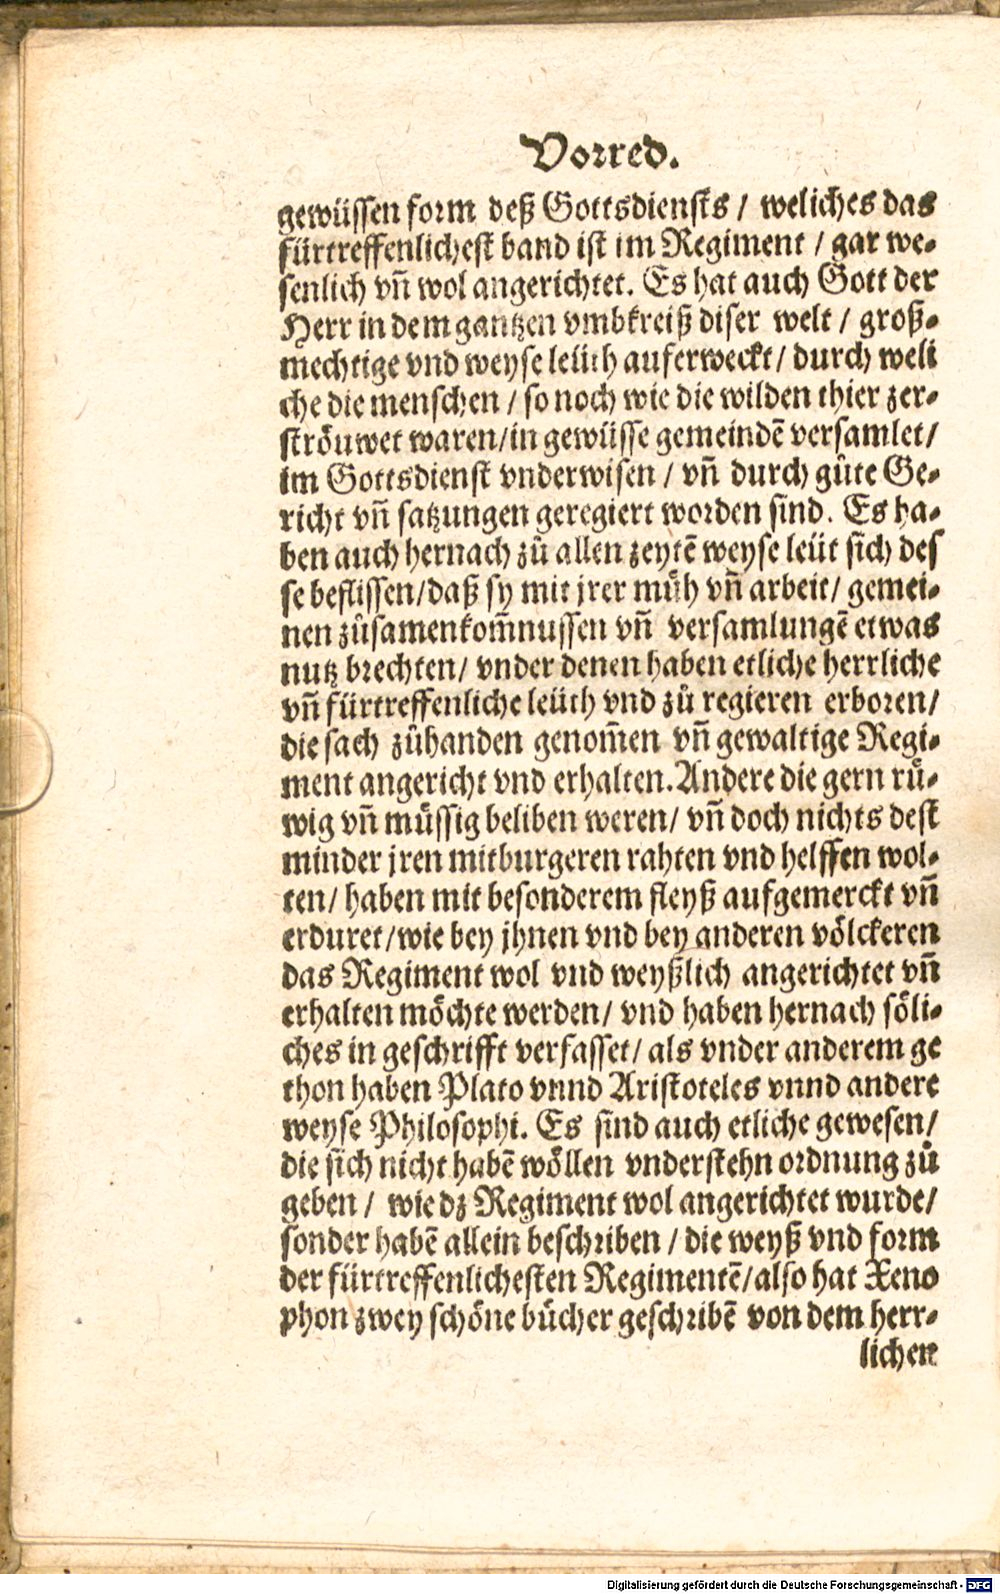 Vorred.
gewüssen form deß Gottsdiensts / weliches das
fürtreffenlichest band ist im Regiment / gar we⸗
senlich vñ wol angerichtet. Es hat auch Gott der
Herr in dem gantzen vmbkreiß diser welt / groß⸗
mechtige vnd weyse leüth auferweckt / durch weli
che die menschen / so noch wie die wilden thier zer⸗
ströuwet waren / in gewüsse gemeindẽ versamlet /
im Gottsdienst vnderwisen / vñ durch gůte Ge⸗
richt vñ satzungen geregiert worden sind. Es ha⸗
ben auch hernach zů allen zeytẽ weyse leüt sich des
se beflissen / daß sy mit jrer müh vñ arbeit / gemei⸗
nen zůsamenkom̃nussen vñ versamlungẽ etwas
nutz brechten / vnder denen haben etliche herrliche
vñ fürtreffenliche leüth vnd zů regieren erboren /
die sach zůhanden genom̃en vñ gewaltige Regi⸗
ment angericht vnd erhalten. Andere die gern rů⸗
wig vñ müssig beliben weren / vñ doch nichts dest
minder jren mitburgeren rahten vnd helffen wol⸗
ten / haben mit besonderem fleyß aufgemerckt vñ
erduret / wie bey jhnen vnd bey anderen völckeren
das Regiment wol vnd weyßlich angerichtet vñ
erhalten möchte werden / vnd haben hernach söli⸗
ches in geschrifft verfasset / als vnder anderem ge
thon haben Plato vnnd Aristoteles vnnd andere
weyse Philosophi. Es sind auch etliche gewesen /
die sich nicht habẽ wöllen vnderstehn ordnung zů
geben / wie dz Regiment wol angerichtet wurde /
sonder habẽ allein beschriben / die weyß vnd form
der fürtreffenlichesten Regimentẽ / also hat Xeno
phon zwey schöne bücher geschribẽ von dem herr⸗
lichen
Digitalisierung gefördert durch die Deutsche Forschungsgemeinschaft - DFG